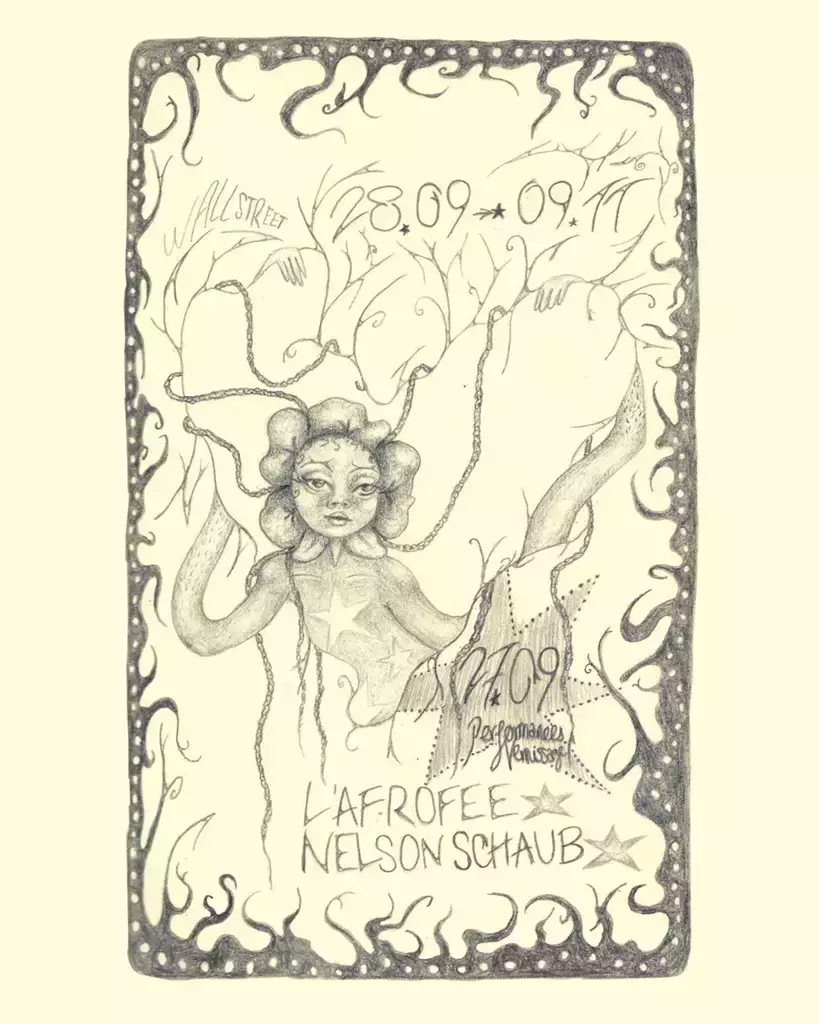 WALL STREET
28.09 → 09.11
27.09
Performances
Vernissage
L'AFROFEE
NELSON SCHAUB